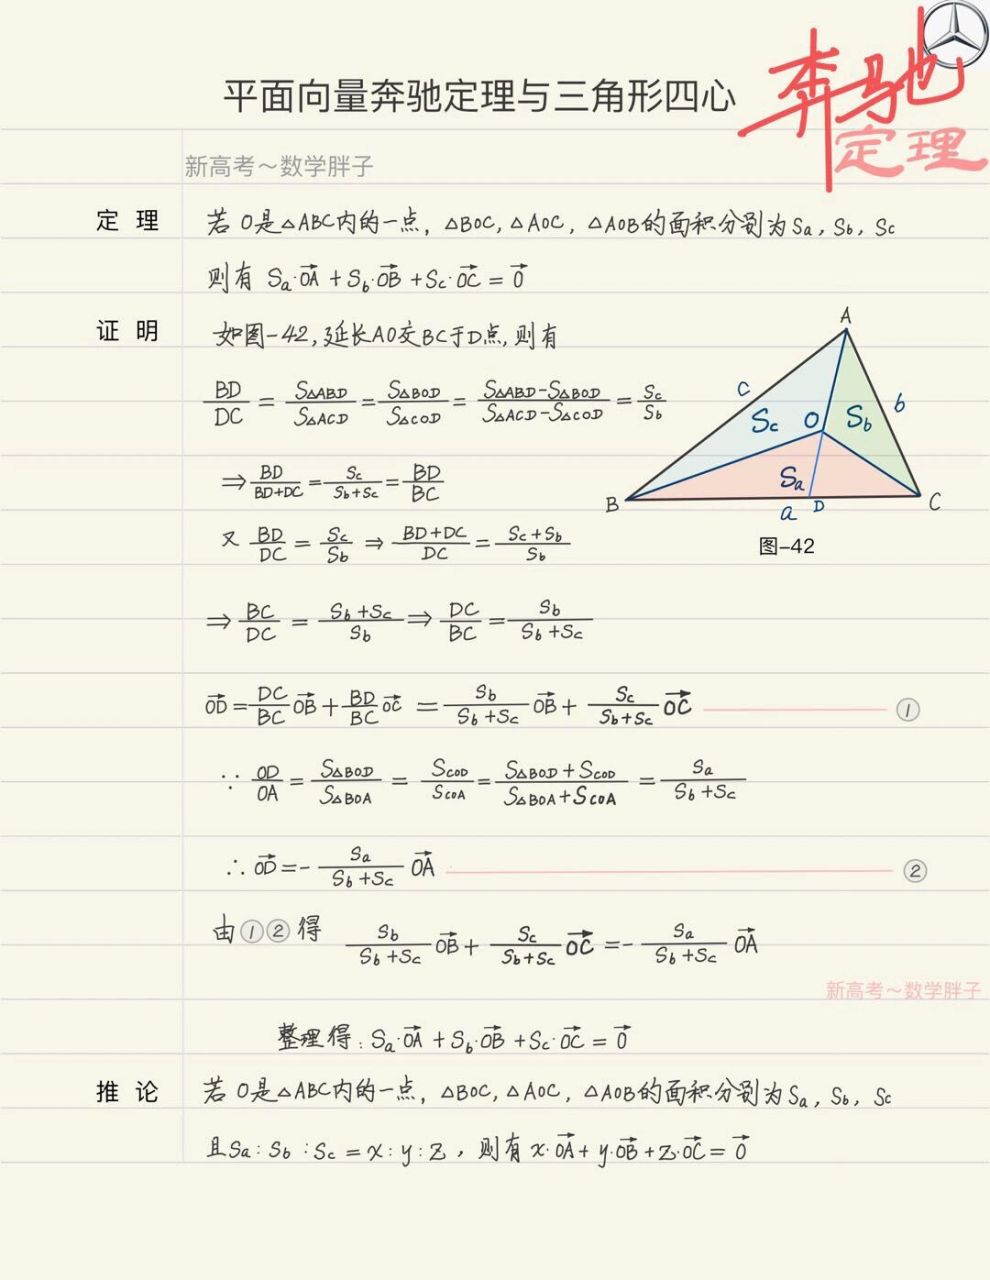 平面向量奔驰定理与三角形四心
奔驰
定理
新高考～数学胖子
定 理 若O是△ABC内的一点，△BOC，△AOC，△AOB的面积分别为Sa，Sb，Sc
则有 Sa·OA⃗ + Sb·OB⃗ + Sc·OC⃗ = 0⃗
证 明 如图-42，延长AO交BC于D点，则有
BD/DC = S△ABD/S△ACD = S△BOD/S△COD = (S△ABD-S△BOD)/(S△ACD-S△COD) = Sc/Sb
⇒ BD/(BD+DC) = Sc/(Sb+Sc) = BD/BC
又 BD/DC = Sc/Sb ⇒ (BD+DC)/DC = (Sc+Sb)/Sb
⇒ BC/DC = (Sb+Sc)/Sb ⇒ DC/BC = Sb/(Sb+Sc)
A
c
b
Sc O Sb
Sa
B a D C
图-42
OD⃗ = DC/BC OB⃗ + BD/BC OC⃗ = Sb/(Sb+Sc) OB⃗ + Sc/(Sb+Sc) OC⃗ ①
∵ OD/OA = S△BOD/S△BOA = SCOD/SCOA = (S△BOD+SCOD)/(S△BOA+SCOA) = Sa/(Sb+Sc)
∴ OD⃗ = - Sa/(Sb+Sc) OA⃗ ②
由①②得 Sb/(Sb+Sc) OB⃗ + Sc/(Sb+Sc) OC⃗ = - Sa/(Sb+Sc) OA⃗
新高考～数学胖子
整理得：Sa·OA⃗ + Sb·OB⃗ + Sc·OC⃗ = 0⃗
推 论 若O是△ABC内的一点，△BOC，△AOC，△AOB的面积分别为Sa，Sb，Sc
且Sa：Sb：Sc = x：y：z，则有 x·OA⃗ + y·OB⃗ + z·OC⃗ = 0⃗